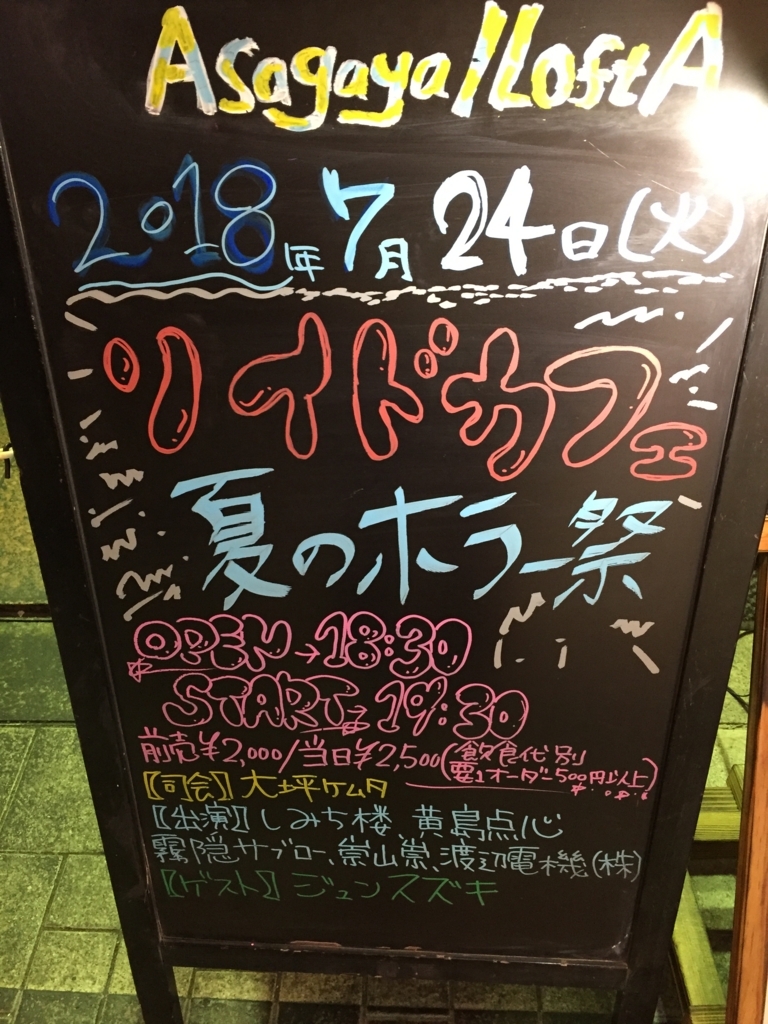 Asagaya/LoftA
2018年7月24日(火)
リイドカフェ
夏のホラー祭
OPEN→18:30
START→19:30
前売¥2,000/当日¥2,500(飲食代別
要1オーダー500円以上)
【司会】大坪ケムタ
【出演】しみち楼、黄島点心
霧隠サブロー、崇山祟、渡辺電機(株)
【ゲスト】ジュンスズキ